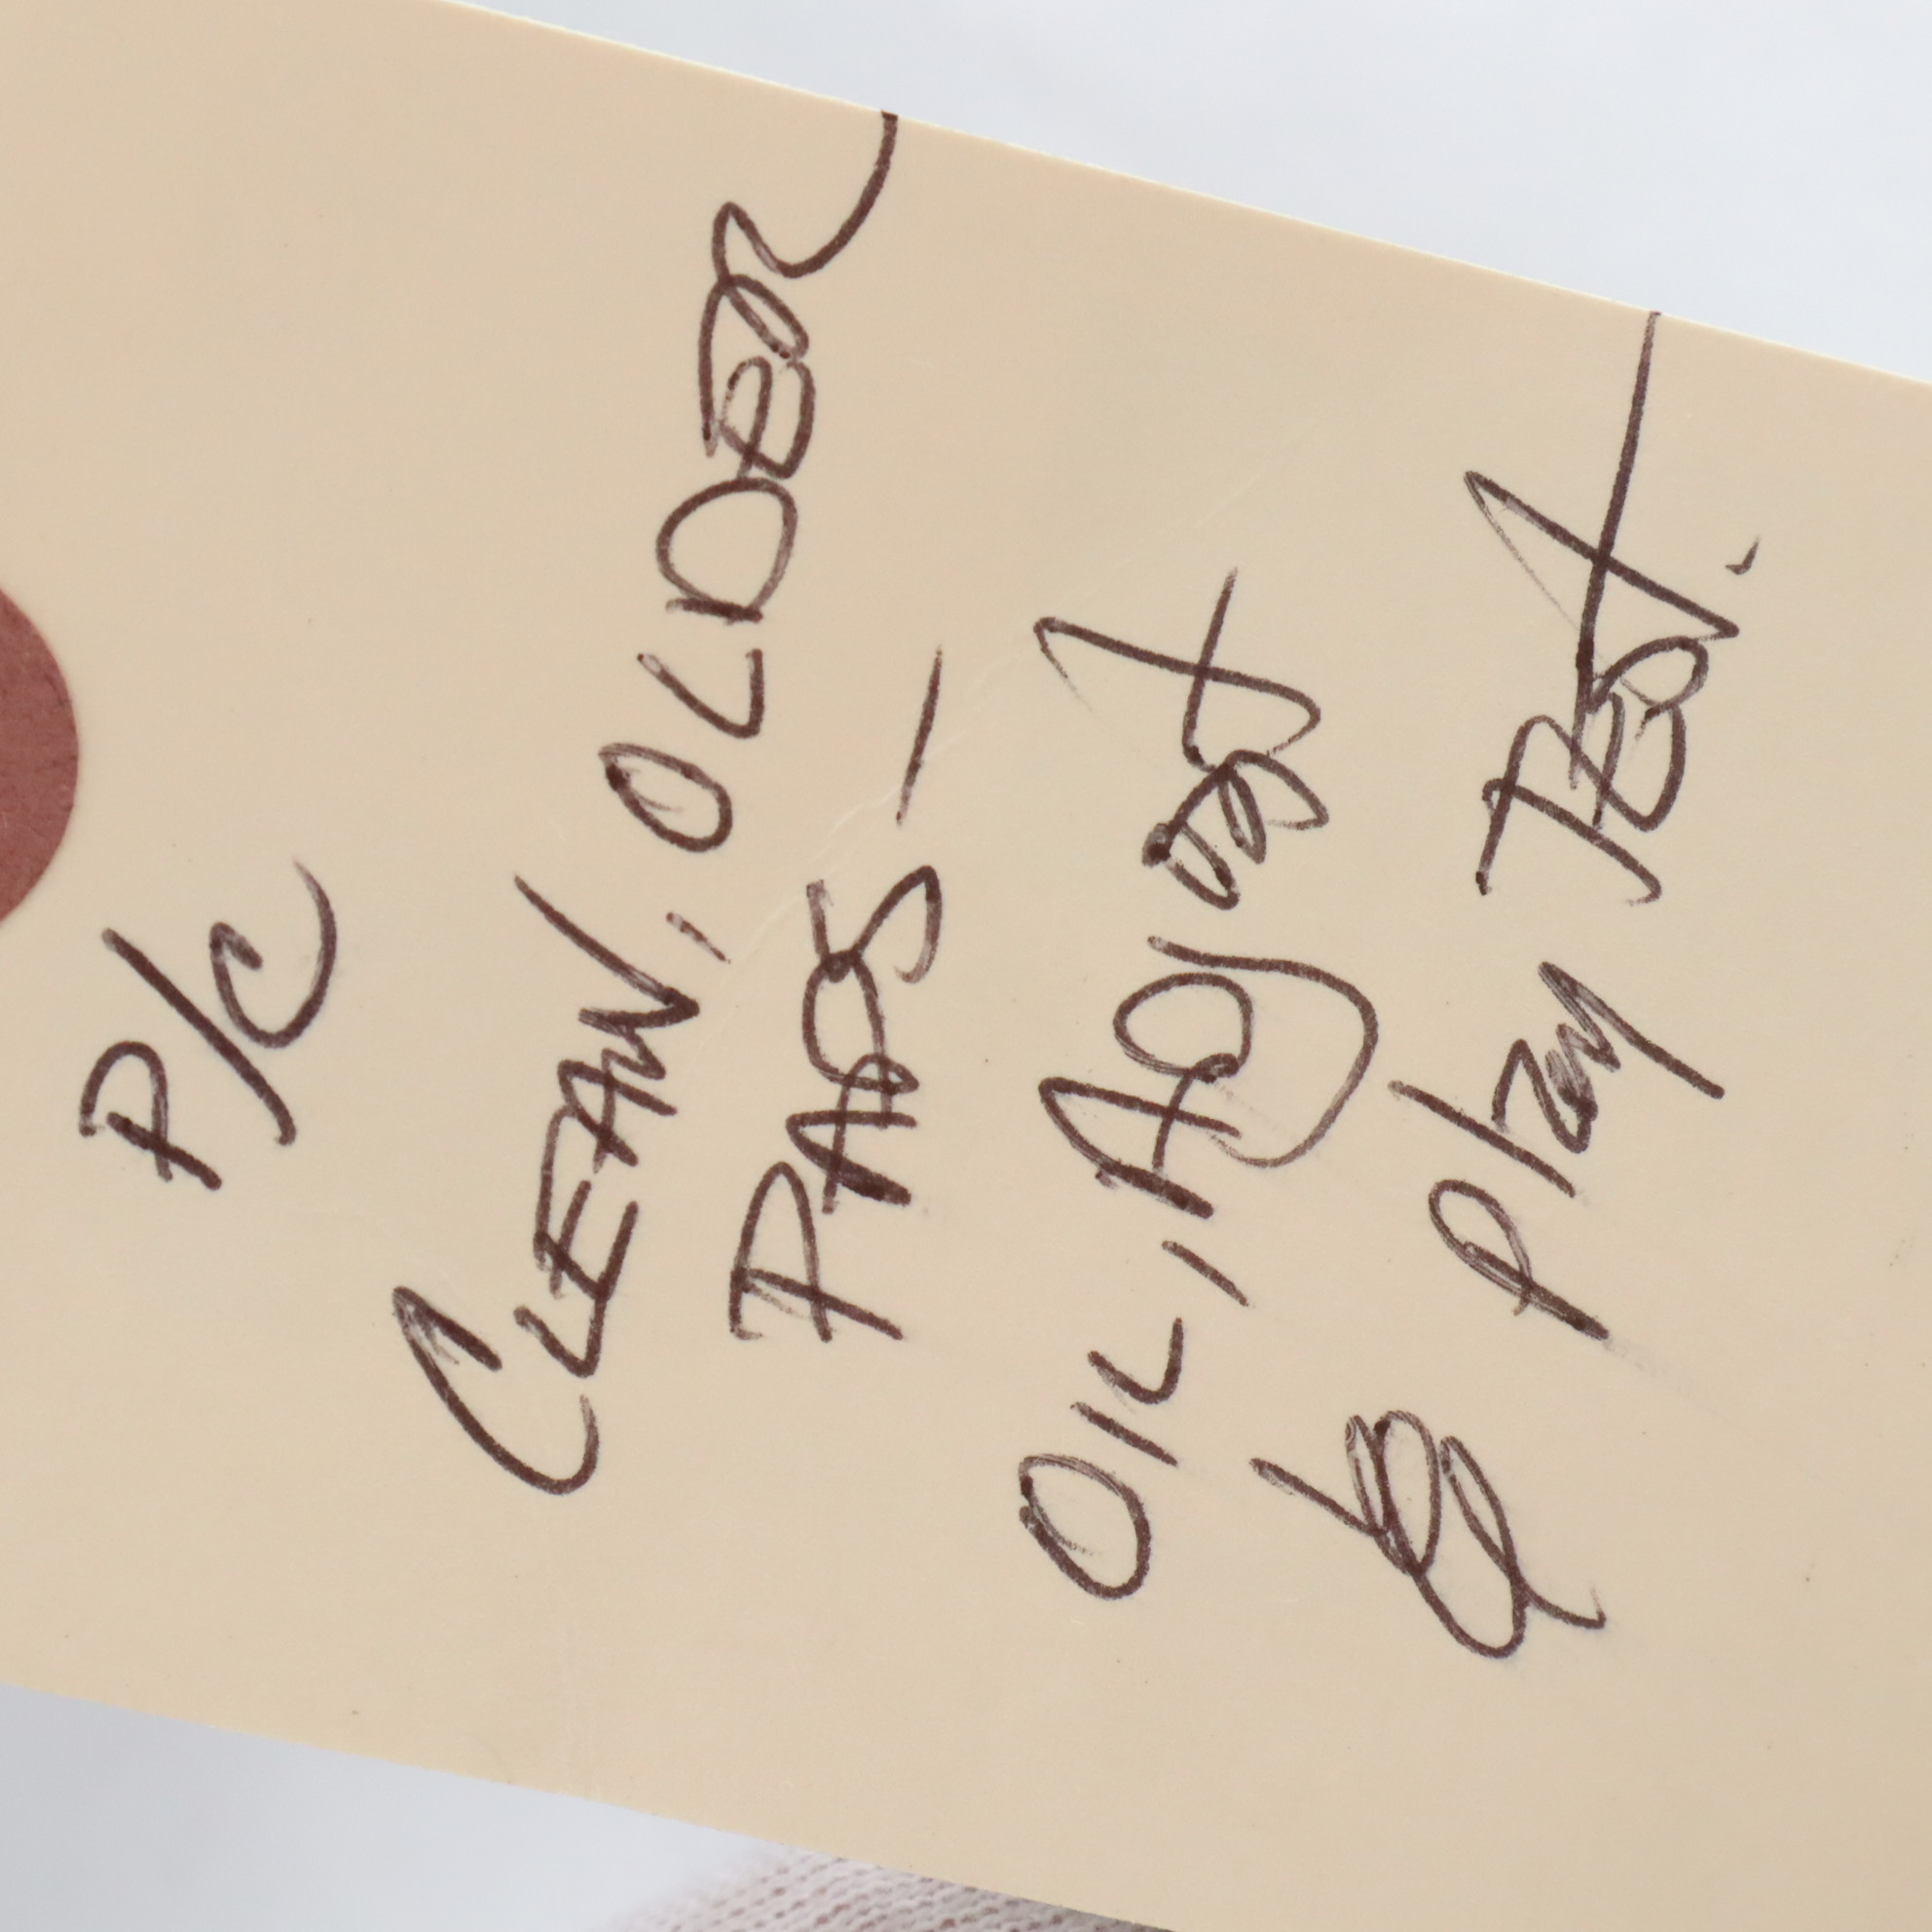 P/C
CLEAN, OLDER
PADS —
OIL, ADJUST
& Play Test.